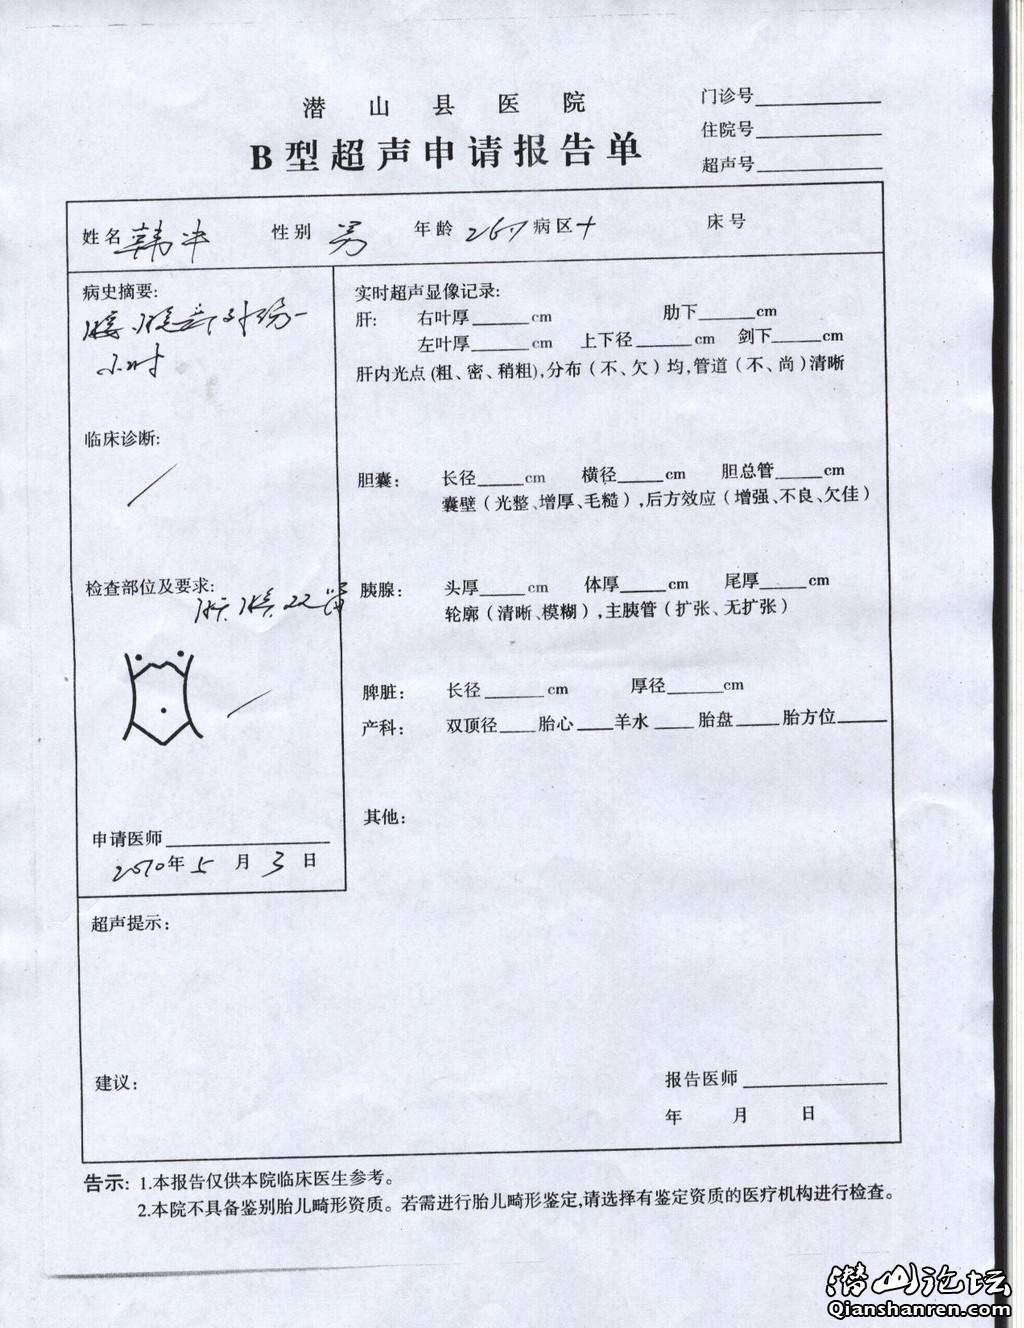 潜山县医院
B型超声申请报告单
门诊号
住院号
超声号
姓名 韩 性别 男 年龄 26 病区 床号
病史摘要:
小时
临床诊断:
检查部位及要求:
申请医师
2010年 5 月 3 日
实时超声显像记录:
肝: 右叶厚____cm 肋下____cm
左叶厚____cm 上下径____cm 剑下____cm
肝内光点(粗、密、稍粗),分布(不、欠)均,管道(不、尚)清晰
胆囊: 长径____cm 横径____cm 胆总管____cm
囊壁(光整、增厚、毛糙),后方效应(增强、不良、欠佳)
胰腺: 头厚____cm 体厚____cm 尾厚____cm
轮廓(清晰、模糊),主胰管(扩张、无扩张)
脾脏: 长径____cm 厚径____cm
产科: 双顶径____胎心____羊水____胎盘____胎方位____
其他:
超声提示:
建议:
报告医师
年 月 日
告示: 1.本报告仅供本院临床医生参考。
2.本院不具备鉴别胎儿畸形资质。若需进行胎儿畸形鉴定,请选择有鉴定资质的医疗机构进行检查。
潜山论坛
Qianshanren.com